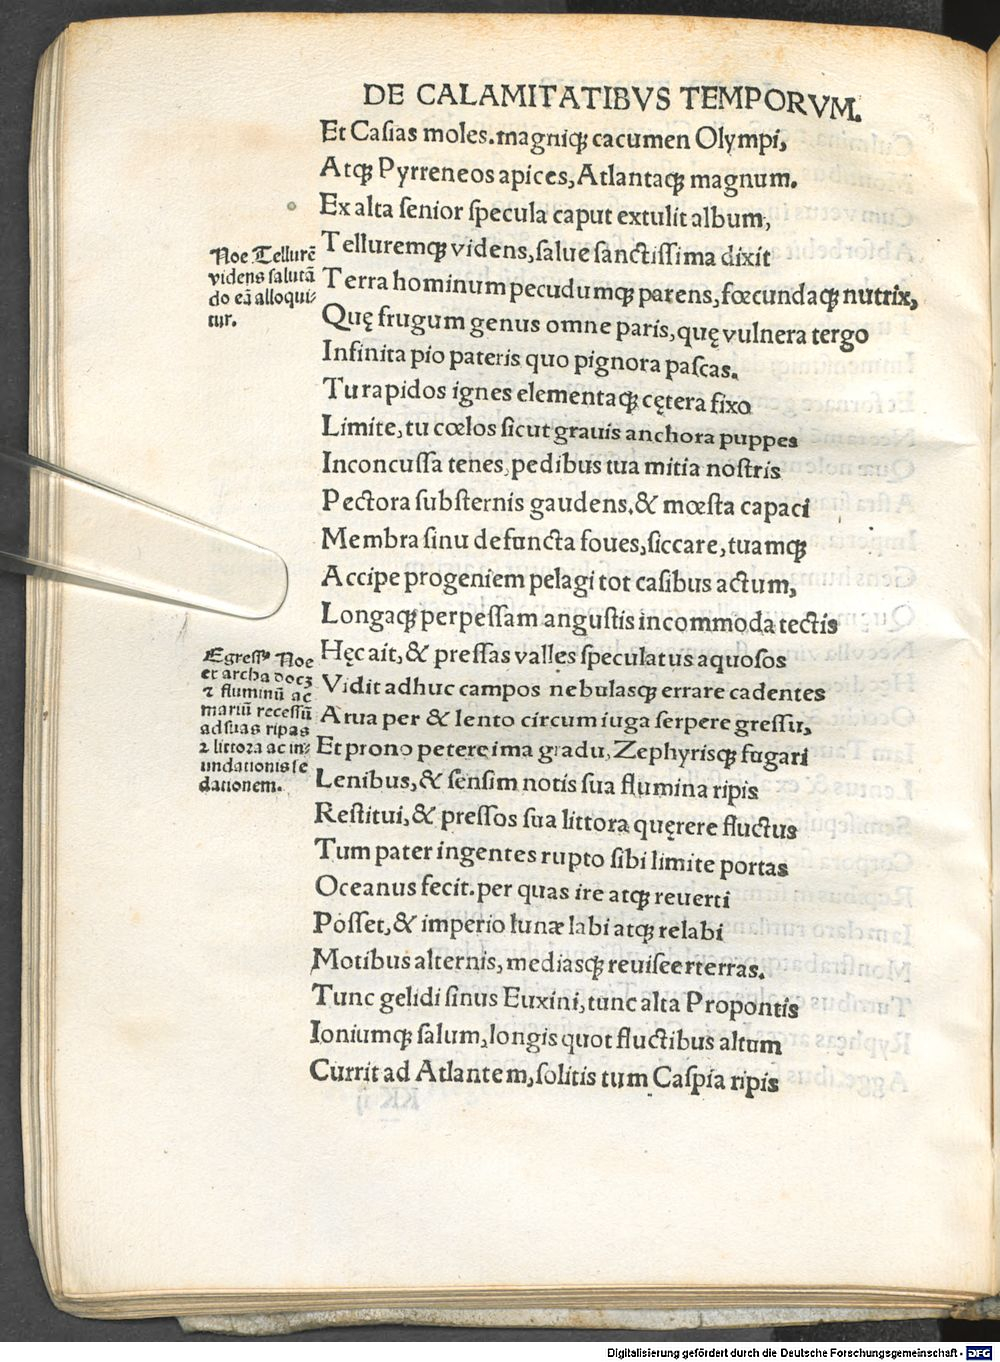 DE CALAMITATIBVS TEMPORVM.
Et Casias moles.magniqꝫ cacumen Olympi,
Atqꝫ Pyrreneos apices, Atlantaqꝫ magnum.
Ex alta senior specula caput extulit album,
Telluremqꝫ videns, salue sanctissima dixit
Terra hominum pecudumqꝫ parens, fœcundaqꝫ nutrix,
Quę frugum genus omne paris, quę vulnera tergo
Infinita pio pateris quo pignora pascas.
Tu rapidos ignes elementaqꝫ cętera fixo
Limite, tu cœlos sicut grauis anchora puppes
Inconcussa tenes, pedibus tua mitia nostris
Pectora substernis gaudens, & mœsta capaci
Membra sinu defuncta foues, siccare, tuamqꝫ
Accipe progeniem pelagi tot casibus actum,
Longaqꝫ perpessam angustis incommoda tectis
Hęc ait, & pressas valles speculatus aquosos
Vidit adhuc campos nebulasqꝫ errare cadentes
Arua per & lento circum iuga serpere gressu,
Et prono petere ima gradu, Zephyrisqꝫ fugari
Lenibus, & sensim notis sua flumina ripis
Restitui, & pressos sua littora quęrere fluctus
Tum pater ingentes rupto sibi limite portas
Oceanus fecit. per quas ire atqꝫ reuerti
Posset, & imperio lunæ labi atqꝫ relabi
Motibus alternis, mediasqꝫ reuiseerterras.
Tunc gelidi sinus Euxini, tunc alta Propontis
Ioniumqꝫ salum, longis quot fluctibus altum
Currit ad Atlantem, solitis tum Caspia ripis
Noe Tellurē
videns salutā
do eā alloqui-
tur.
Egressꝰ Noe
et archa docꝫ
⁊ fluminū ac
mariū recessū
ad suas ripas
⁊ littora ac in-
undationis se
dationem.
KK ij
Digitalisierung gefördert durch die Deutsche Forschungsgemeinschaft - DFG